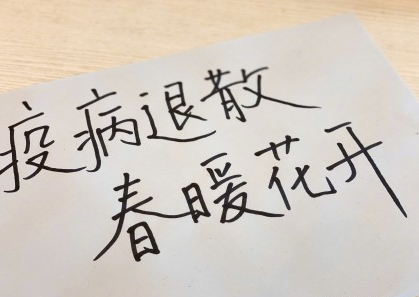 疫病退散
春暖花开